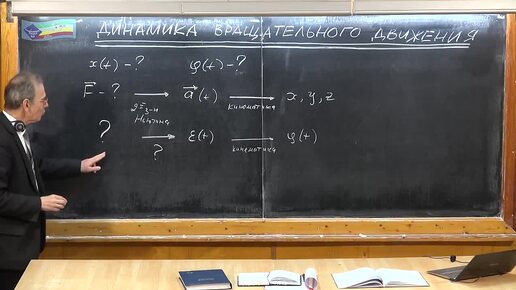 ДИНАМИКА ВРАЩАТЕЛЬНОГО ДВИЖЕНИЯ
x(t) - ? φ(t) - ?
F⃗ - ? → a⃗(t) → x, y, z
2й з-н Ньютона кинематика
? → ε(t) → φ(t)
? кинематика